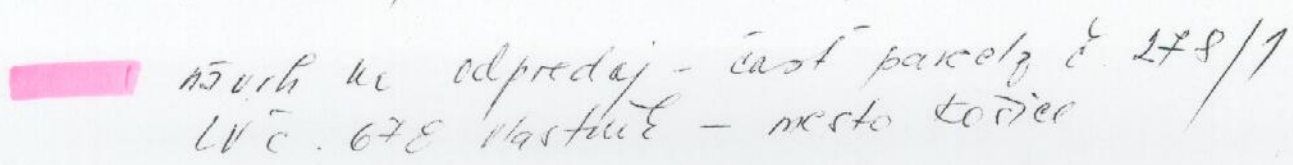 návrh na odpredaj - časť parcely č. 278/1
LV č. 678 vlastník - mesto Košice